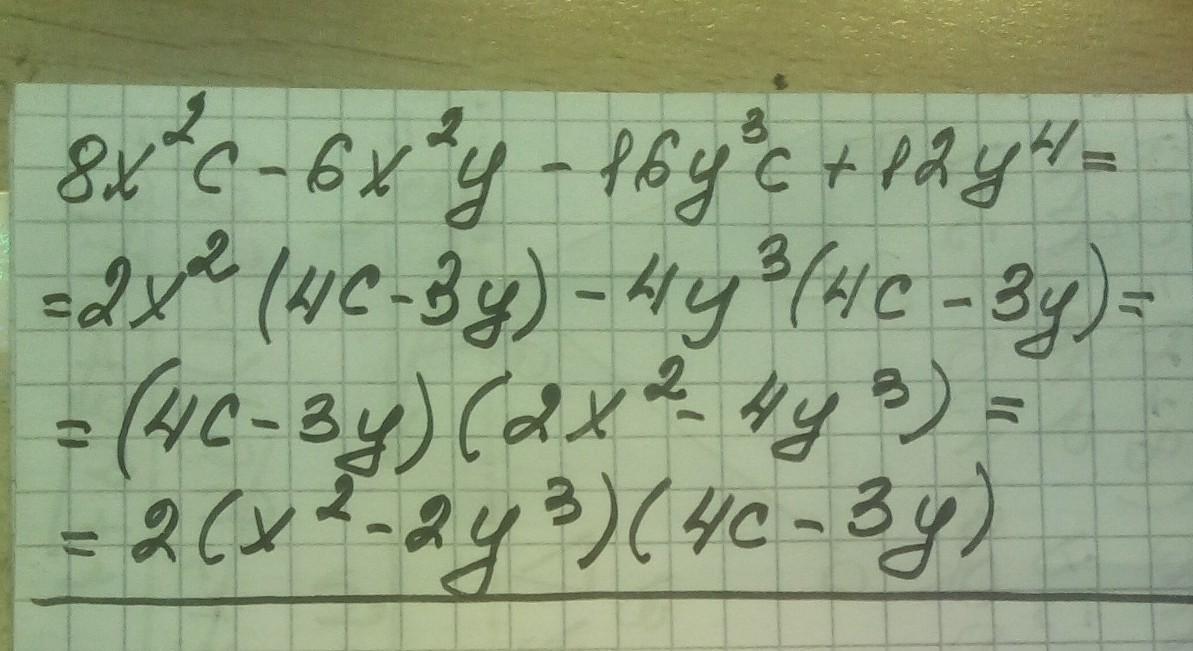 8x²c - 6x²y - 16y³c + 12y⁴ =
= 2x² (4c - 3y) - 4y³ (4c - 3y) =
= (4c - 3y) (2x² - 4y³) =
= 2 (x² - 2y³) (4c - 3y)